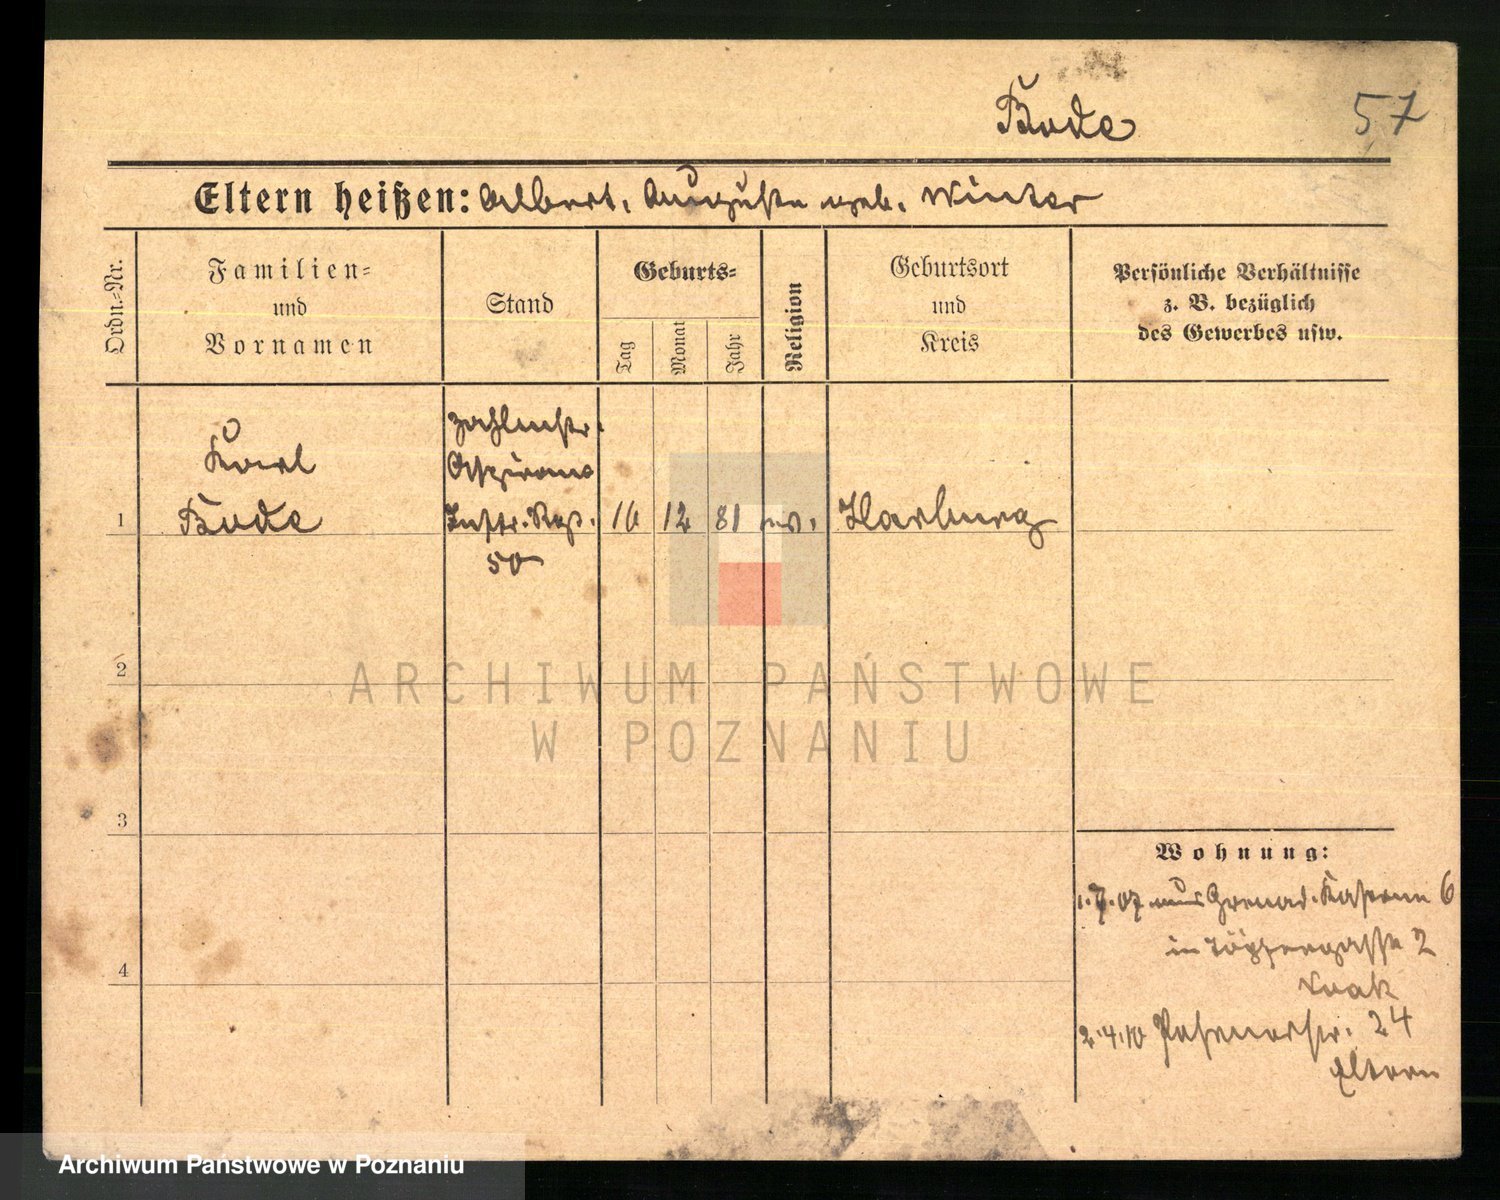 Bode 57
Eltern heißen: Albert, Auguste geb. Winter
Ordn.-Nr.
Familien-
und
Vornamen
Stand
Geburts-
Tag
Monat
Jahr
Religion
Geburtsort
und
Kreis
Persönliche Verhältnisse
z. B. bezüglich
des Gewerbes usw.
Karl
Bode
Zahlmstr.
Aspirant
Inftr. Reg.
50
1
16 12 81 ev. Harburg
2
3
4
Wohnung:
1.7.07 aus Grenad. Kaserne 6
in Töpfergasse 2
2.4.10 Posenerstr. 24
Eltern
ARCHIWUM PAŃSTWOWE
W POZNANIU
Archiwum Państwowe w Poznaniu